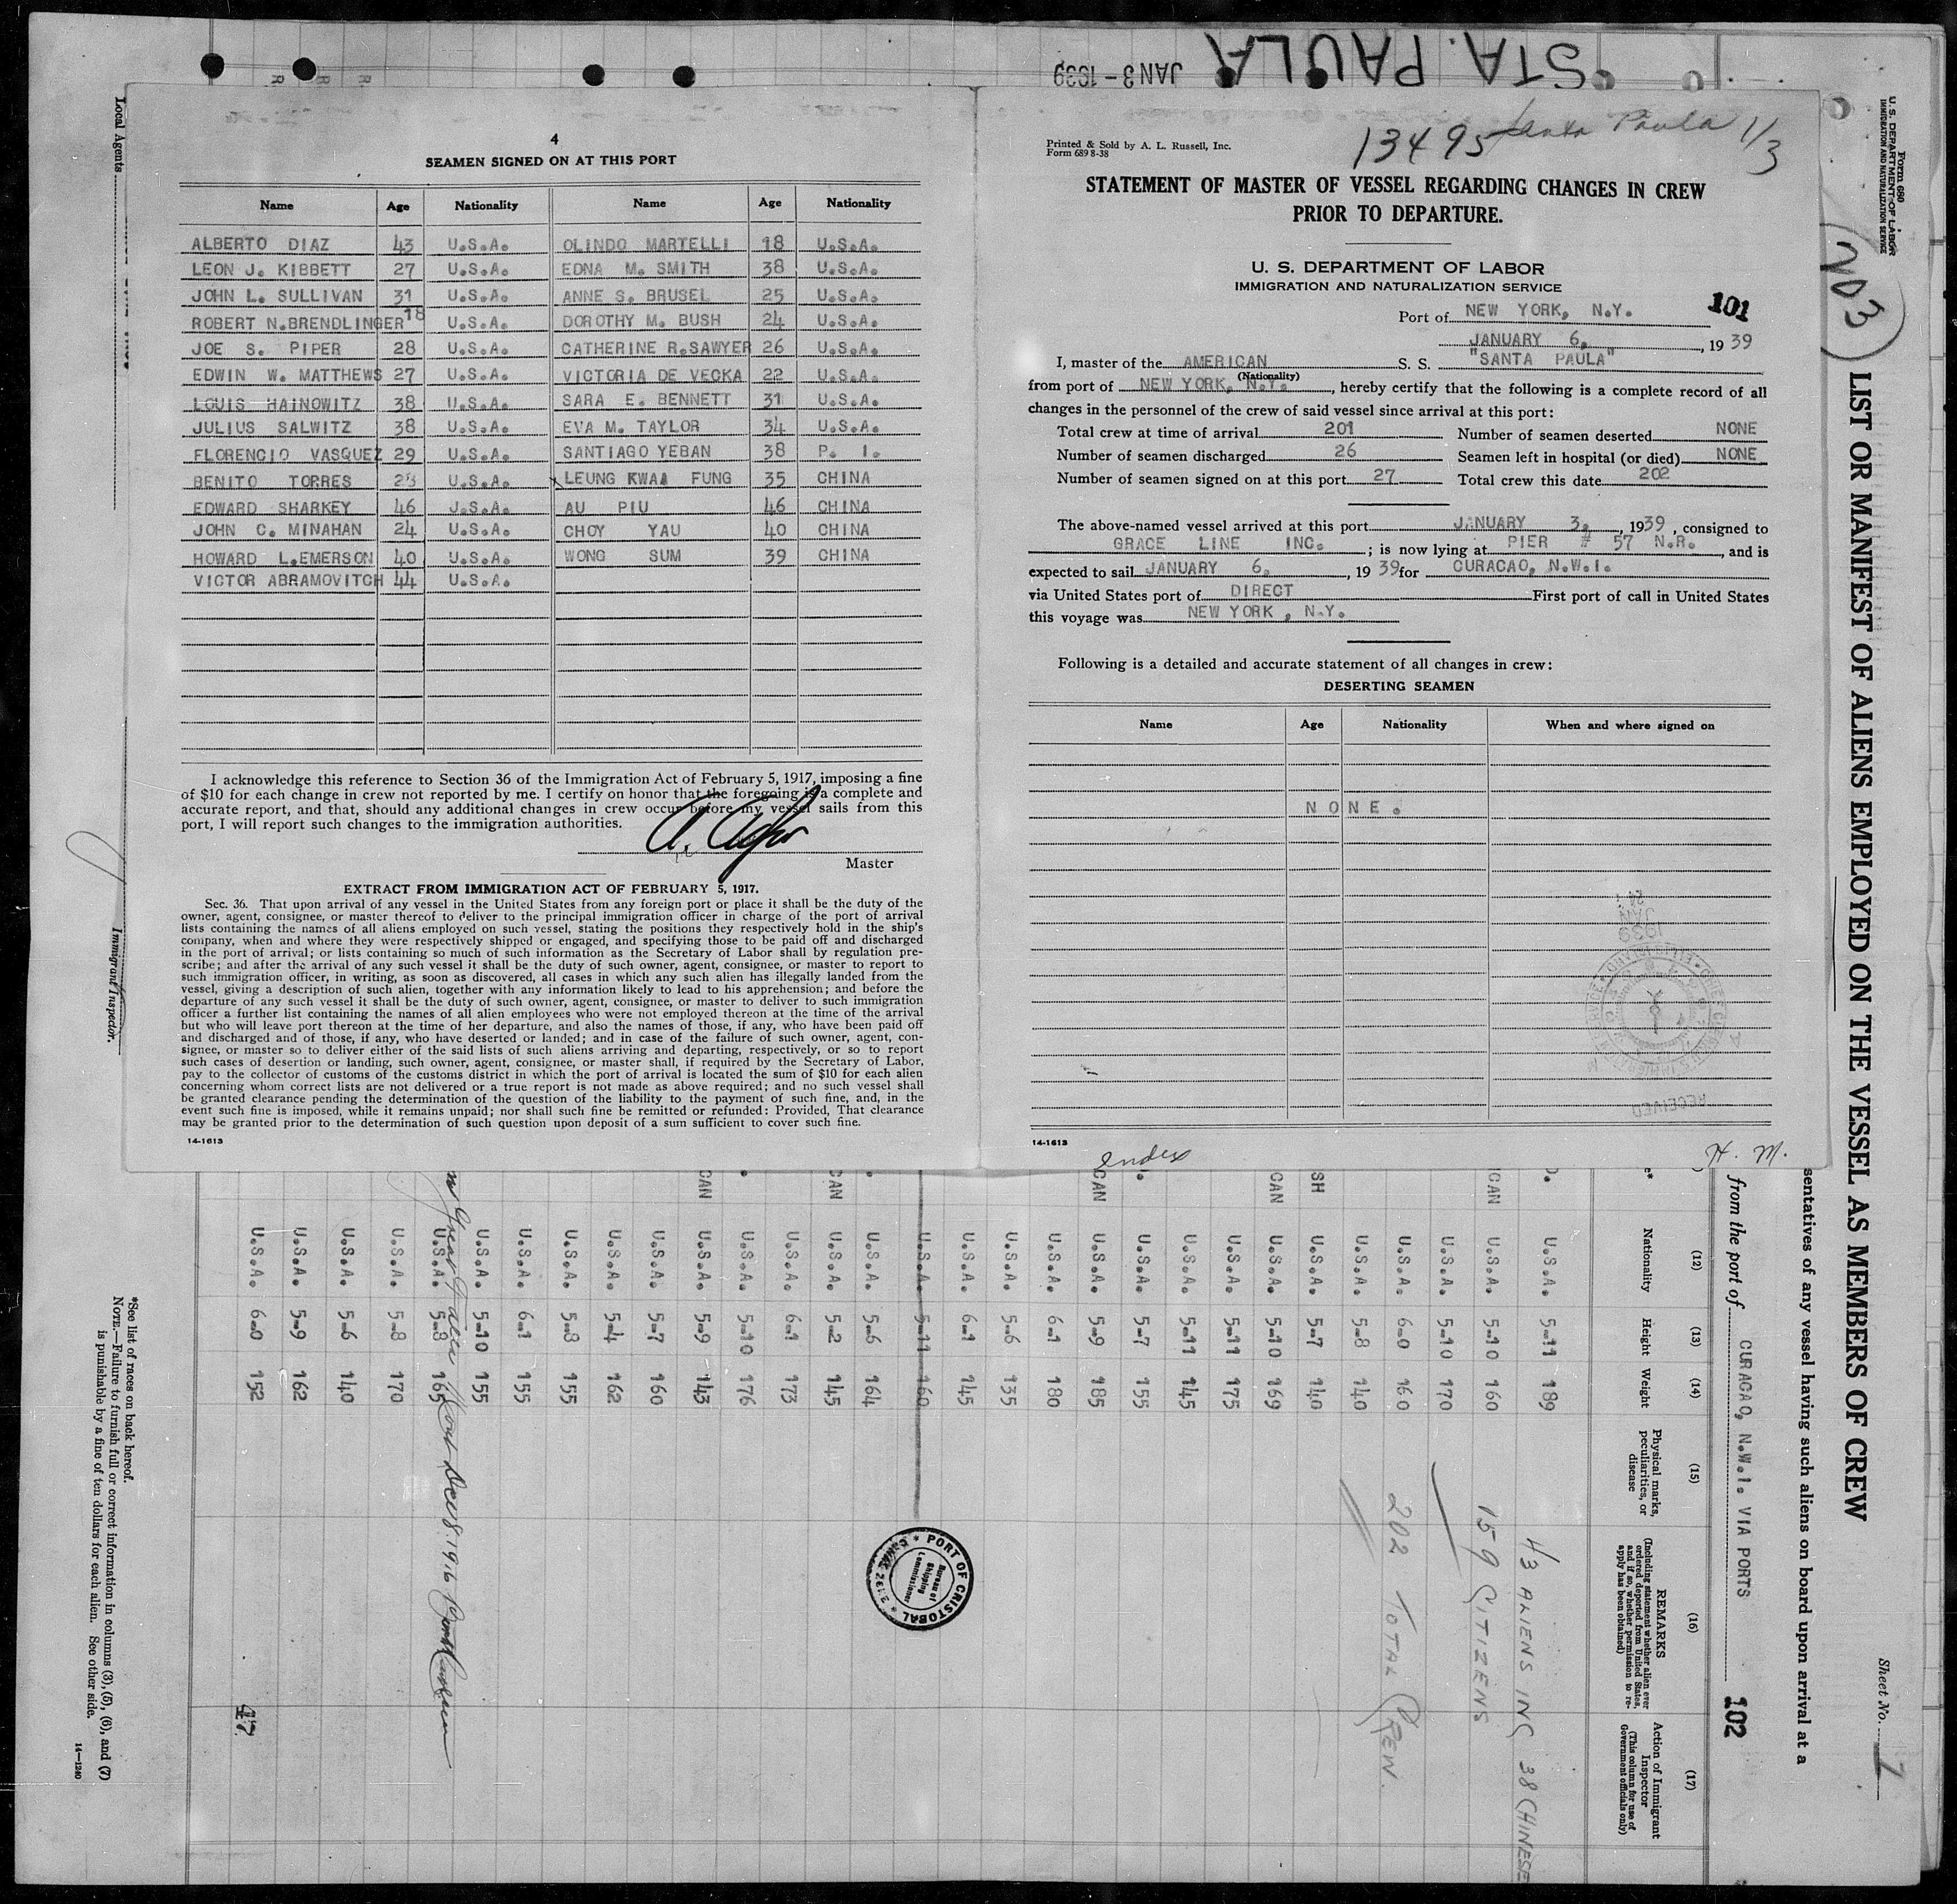 STA. PAULA
JAN 3 - 1939
Local Agents
Immigrant Inspector.
4
SEAMEN SIGNED ON AT THIS PORT
Name Age Nationality Name Age Nationality
ALBERTO DIAZ 43 U.S.A. OLINDO MARTELLI 18 U.S.A.
LEON J. KIBBETT 27 U.S.A. EDNA M. SMITH 38 U.S.A.
JOHN L. SULLIVAN 31 U.S.A. ANNE S. BRUSEL 25 U.S.A.
ROBERT N.BRENDLINGER 18 U.S.A. DOROTHY M. BUSH 24 U.S.A.
JOE S. PIPER 28 U.S.A. CATHERINE R.SAWYER 26 U.S.A.
EDWIN W. MATTHEWS 27 U.S.A. VICTORIA DE VECKA 22 U.S.A.
LOUIS HAINOWITZ 38 U.S.A. SARA E. BENNETT 31 U.S.A.
JULIUS SALWITZ 38 U.S.A. EVA M. TAYLOR 34 U.S.A.
FLORENCIO VASQUEZ 29 U.S.A. SANTIAGO YEBAN 38 P. I.
BENITO TORRES 23 U.S.A. LEUNG KWAI FUNG 35 CHINA
EDWARD SHARKEY 46 U.S.A. AU PIU 46 CHINA
JOHN C. MINAHAN 24 U.S.A. CHOY YAU 40 CHINA
HOWARD L.EMERSON 40 U.S.A. WONG SUM 39 CHINA
VICTOR ABRAMOVITCH 44 U.S.A.
I acknowledge this reference to Section 36 of the Immigration Act of February 5, 1917, imposing a fine
of $10 for each change in crew not reported by me. I certify on honor that the foregoing is a complete and
accurate report, and that, should any additional changes in crew occur before my vessel sails from this
port, I will report such changes to the immigration authorities.
Master
EXTRACT FROM IMMIGRATION ACT OF FEBRUARY 5, 1917.
Sec. 36. That upon arrival of any vessel in the United States from any foreign port or place it shall be the duty of the
owner, agent, consignee, or master thereof to deliver to the principal immigration officer in charge of the port of arrival
lists containing the names of all aliens employed on such vessel, stating the positions they respectively hold in the ship's
company, when and where they were respectively shipped or engaged, and specifying those to be paid off and discharged
in the port of arrival; or lists containing so much of such information as the Secretary of Labor shall by regulation pre-
scribe; and after the arrival of any such vessel it shall be the duty of such owner, agent, consignee, or master to report to
such immigration officer, in writing, as soon as discovered, all cases in which any such alien has illegally landed from the
vessel, giving a description of such alien, together with any information likely to lead to his apprehension; and before the
departure of any such vessel it shall be the duty of such owner, agent, consignee, or master to deliver to such immigration
officer a further list containing the names of all alien employees who were not employed thereon at the time of the arrival
but who will leave port thereon at the time of her departure, and also the names of those, if any, who have been paid off
and discharged and of those, if any, who have deserted or landed; and in case of the failure of such owner, agent, con-
signee, or master so to deliver either of the said lists of such aliens arriving and departing, respectively, or so to report
such cases of desertion or landing, such owner, agent, consignee, or master shall, if required by the Secretary of Labor,
pay to the collector of customs of the customs district in which the port of arrival is located the sum of $10 for each alien
concerning whom correct lists are not delivered or a true report is not made as above required; and no such vessel shall
be granted clearance pending the determination of the question of the liability to the payment of such fine, and, in the
event such fine is imposed, while it remains unpaid; nor shall such fine be remitted or refunded: Provided, That clearance
may be granted prior to the determination of such question upon deposit of a sum sufficient to cover such fine.
14-1613
Printed & Sold by A. L. Russell, Inc.
Form 689 8-38
13495 Santa Paula 1/3
STATEMENT OF MASTER OF VESSEL REGARDING CHANGES IN CREW
PRIOR TO DEPARTURE.
U. S. DEPARTMENT OF LABOR
IMMIGRATION AND NATURALIZATION SERVICE
Port of NEW YORK, N.Y. 101
JANUARY 6, , 19 39
I, master of the AMERICAN S. S. "SANTA PAULA"
(Nationality)
from port of NEW YORK, N.Y. , hereby certify that the following is a complete record of all
changes in the personnel of the crew of said vessel since arrival at this port:
Total crew at time of arrival 201 Number of seamen deserted NONE
Number of seamen discharged 26 Seamen left in hospital (or died) NONE
Number of seamen signed on at this port 27 Total crew this date 202
The above-named vessel arrived at this port JANUARY 3, , 1939 , consigned to
GRACE LINE INC. ; is now lying at PIER # 57 N.R. , and is
expected to sail JANUARY 6, , 19 39 for CURACAO, N.W.I.
via United States port of DIRECT First port of call in United States
this voyage was NEW YORK , N.Y.
Following is a detailed and accurate statement of all changes in crew:
DESERTING SEAMEN
Name Age Nationality When and where signed on
NONE.
JAN
1939
RECEIVED
14-1613
Index
H. M.
Form 680
U. S. DEPARTMENT OF LABOR
IMMIGRATION AND NATURALIZATION SERVICE
203
LIST OR MANIFEST OF ALIENS EMPLOYED ON THE VESSEL AS MEMBERS OF CREW
Sheet No. 7
sentatives of any vessel having such aliens on board upon arrival at a
from the port of CURACAO, N.W.I. VIA PORTS 102
(12) (13) (14) (15) (16) (17)
Nationality Height Weight Physical marks, peculiarities, or disease
REMARKS
(Including statement whether alien ever ordered deported from United States, and if so, whether permission to re-apply has been obtained)
Action of Immigrant Inspector
(This column for use of Government officials only)
U.S.A. 5-11 189
CAN U.S.A. 5-10 160
U.S.A. 5-10 170
U.S.A. 6-0 160
U.S.A. 5-8 140
SH U.S.A. 5-7 140
CAN U.S.A. 5-10 169
U.S.A. 5-11 175
U.S.A. 5-11 145
U.S.A. 5-7 155
CAN U.S.A. 5-9 185
U.S.A. 6-1 180
U.S.A. 5-6 135
U.S.A. 6-1 145
U.S.A. 5-11 160
U.S.A. 5-6 164
CAN U.S.A. 5-2 145
U.S.A. 6-1 173
U.S.A. 5-10 176
CAN U.S.A. 5-9 143
U.S.A. 5-7 160
U.S.A. 5-4 162
U.S.A. 5-8 155
U.S.A. 6-1 155
U.S.A. 5-10 155
U.S.A. 5-8 165
U.S.A. 5-8 170
U.S.A. 5-6 140
U.S.A. 5-9 162
U.S.A. 6-0 152
43 ALIENS INC 38 CHINESE
159 CITIZENS
202 TOTAL CREW.
PORT OF CRISTOBAL
Bureau of
Shipping
Commissioner
Great Falls Mont Dec 8. 1916
17
*See list of races on back hereof.
NOTE.—Failure to furnish full or correct information in columns (3), (5), (6), and (7)
is punishable by a fine of ten dollars for each alien. See other side.
14—1240